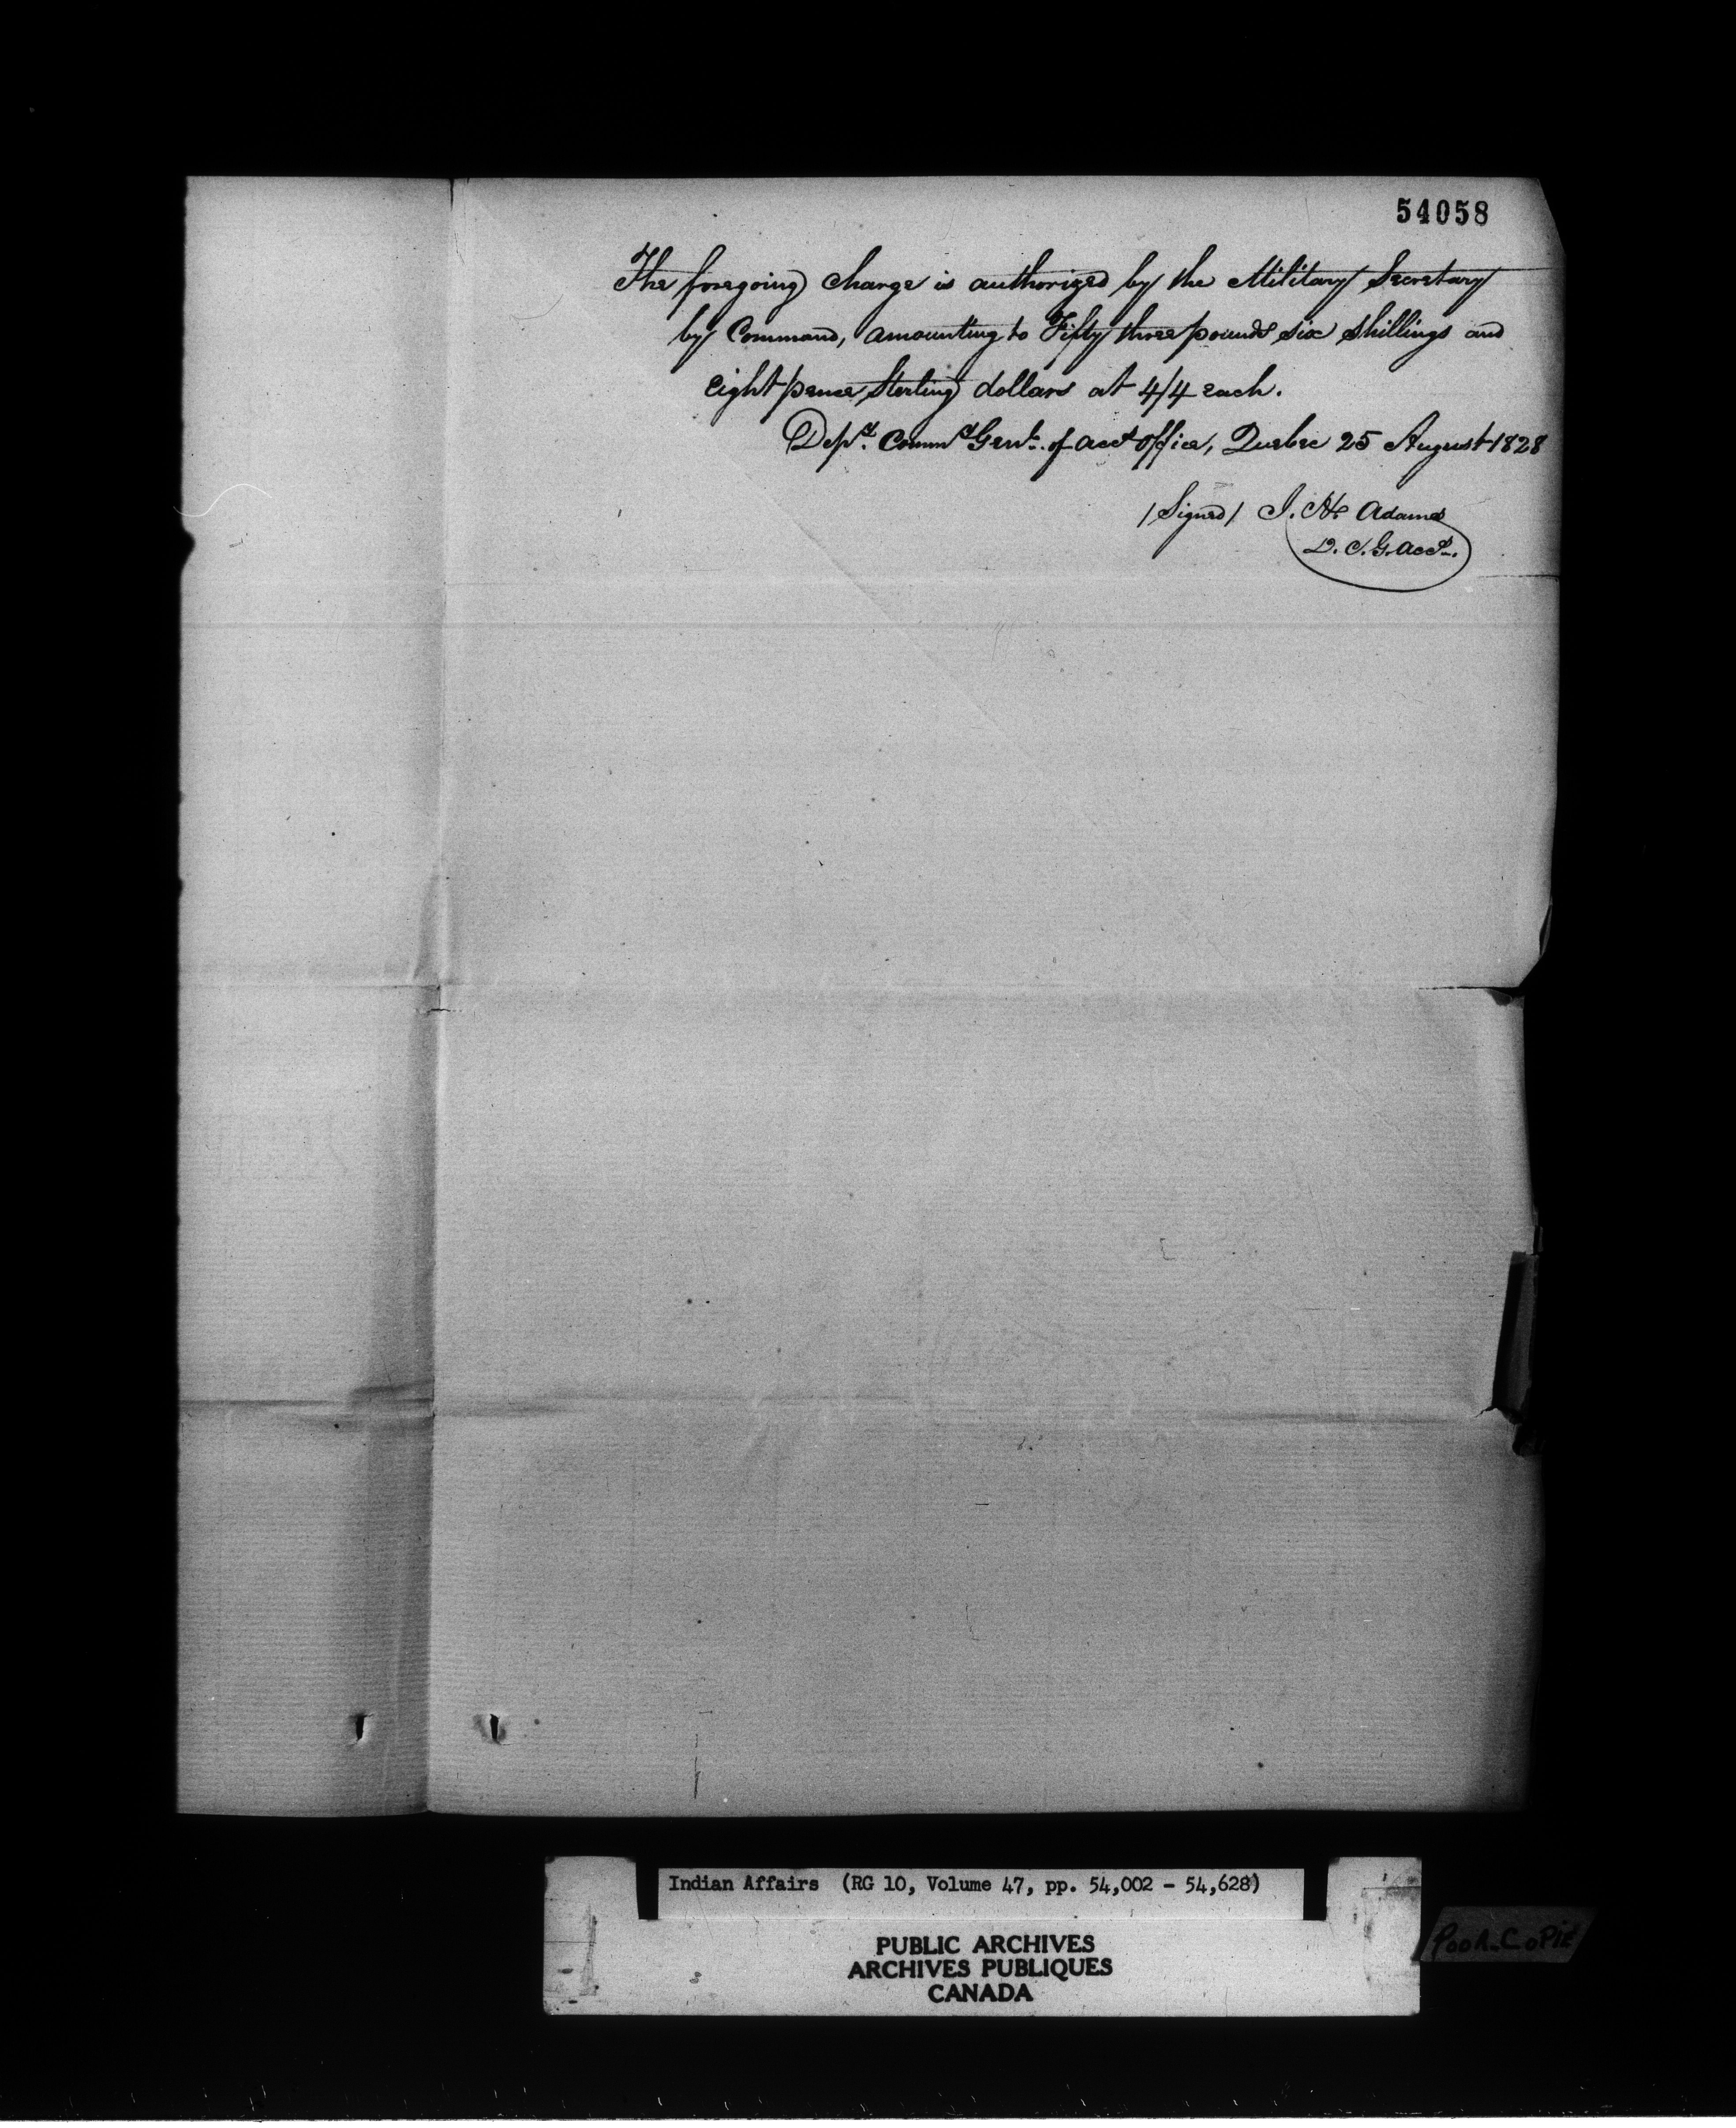 54058
The foregoing charge is authorized by the Military Secretary
by Command, amounting to Fifty three pounds six shillings and
eight pence Sterling dollars at 4/4 each.
Depy. Commy Genl. of acct office, Quebec 25 August 1828
/Signed/ I. H. Adams
D. C. G. Acct.
Indian Affairs (RG 10, Volume 47, pp. 54,002 - 54,628)
PUBLIC ARCHIVES
ARCHIVES PUBLIQUES
CANADA
POOR COPIE